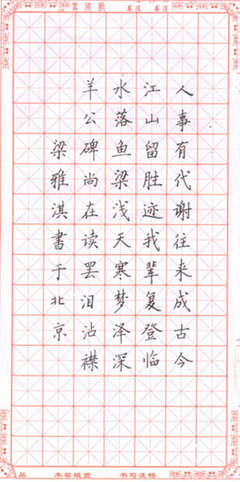 人事有代谢往来成古今
江山留胜迹我辈复登临
水落鱼梁浅天寒梦泽深
羊公碑尚在读罢泪沾襟
梁雅淇書于北京
书写流畅